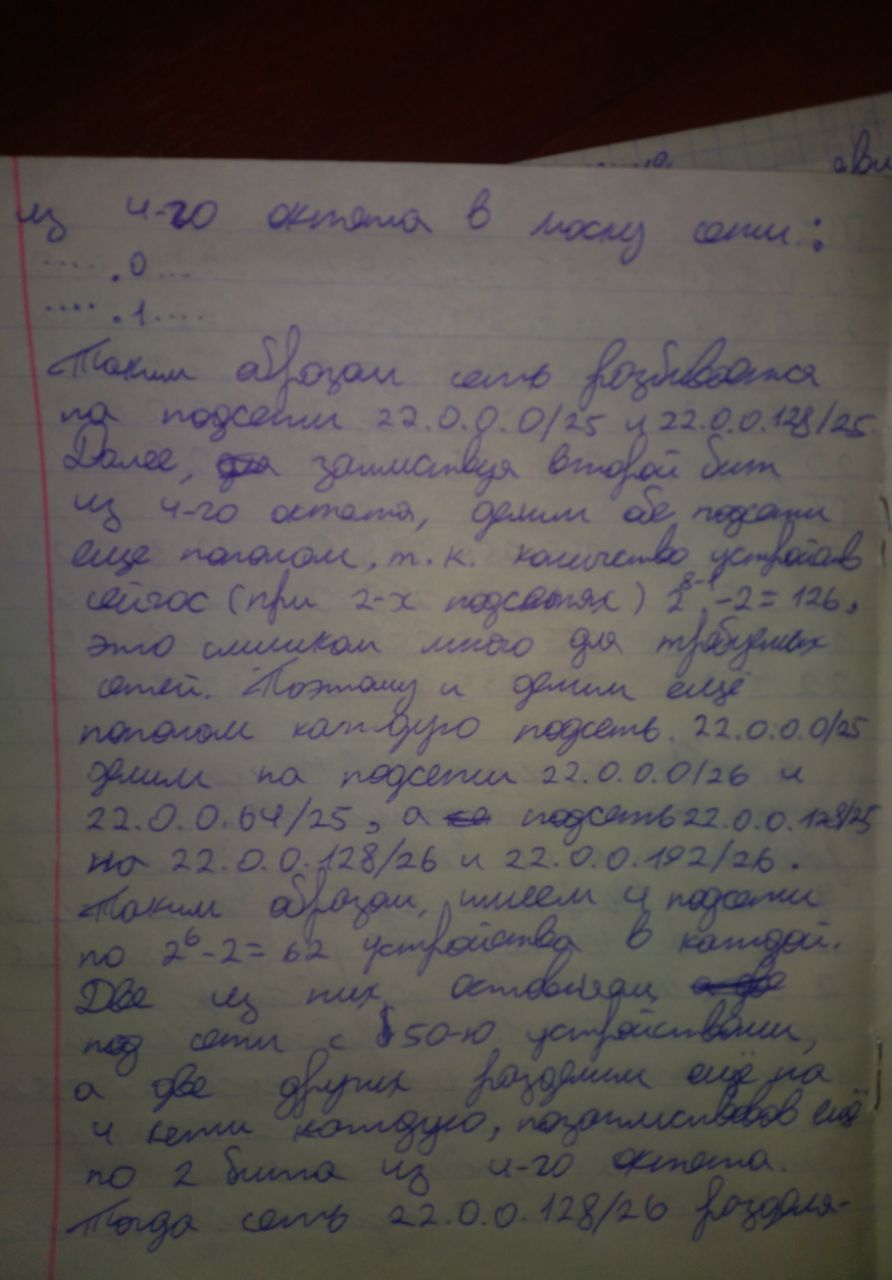 из 4-го октета в маску сети:
.... .0...
.... .1....
Таким образом сеть разбивается
на подсети 22.0.0.0/25 и 22.0.0.128/25.
Далее, заимствуя второй бит
из 4-го октета, делим обе подсети
еще пополам, т.к. количество устройств
сейчас (при 2-х подсетях) 2^8-1 -2=126,
это слишком много для требуемых
сетей. Поэтому и делим ещё
пополам каждую подсеть. 22.0.0.0/25
делим на подсети 22.0.0.0/26 и
22.0.0.64/25, а подсеть 22.0.0.128/25
на 22.0.0.128/26 и 22.0.0.192/26.
Таким образом, имеем 4 подсети
по 2^6-2=62 устройства в каждой.
Две из них оставляем
под сети с 50-ю устройствами,
а две других разделим ещё на
4 сети каждую, позаимствовав ещё
по 2 бита из 4-го октета.
Тогда сеть 22.0.0.128/26 разделя-